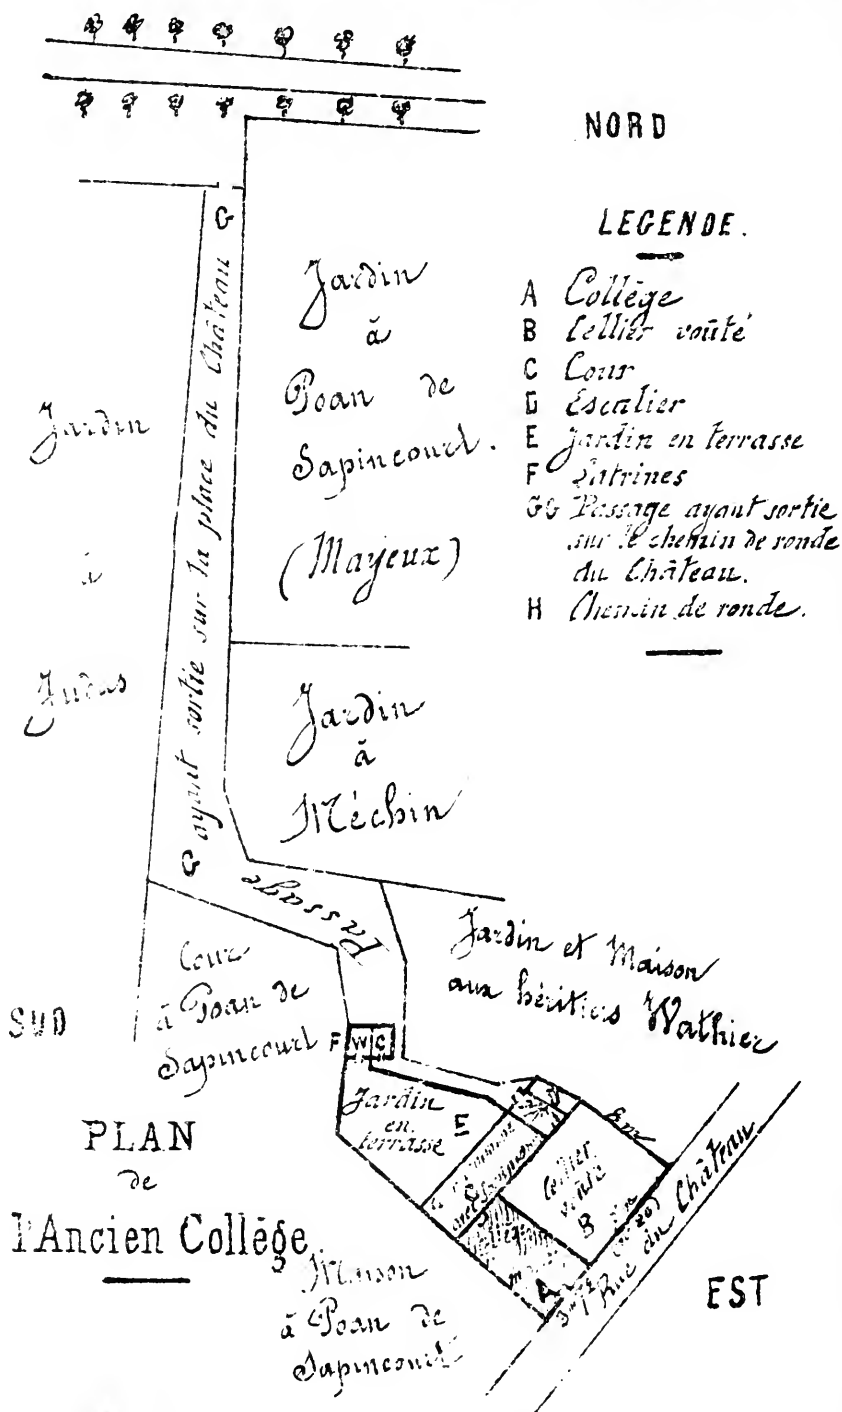 NORD
LEGENDE.
A Collège
B Cellier voûté
C Cour
D Escalier
E Jardin en terrasse
F Latrines
GG Passage ayant sortie
sur le chemin de ronde
du Château.
H Chemin de ronde.
G
Jardin
à
Poan de
Sapincourt.
(Mayeux)
Jardin
à
Judas
G ayant sortie sur la place du Château
Jardin
à
Méchin
Passage
Jardin et Maison
aux héritiers Wathier
Cour
à Poan de
Sapincourt
SUD
F W C
Jardin
en
terrasse
E
D
C
Cellier
voûté
B
8 m
Collège
A
Rue du Château
PLAN
de
l'Ancien Collège.
Maison
à Poan de
Sapincourt
EST